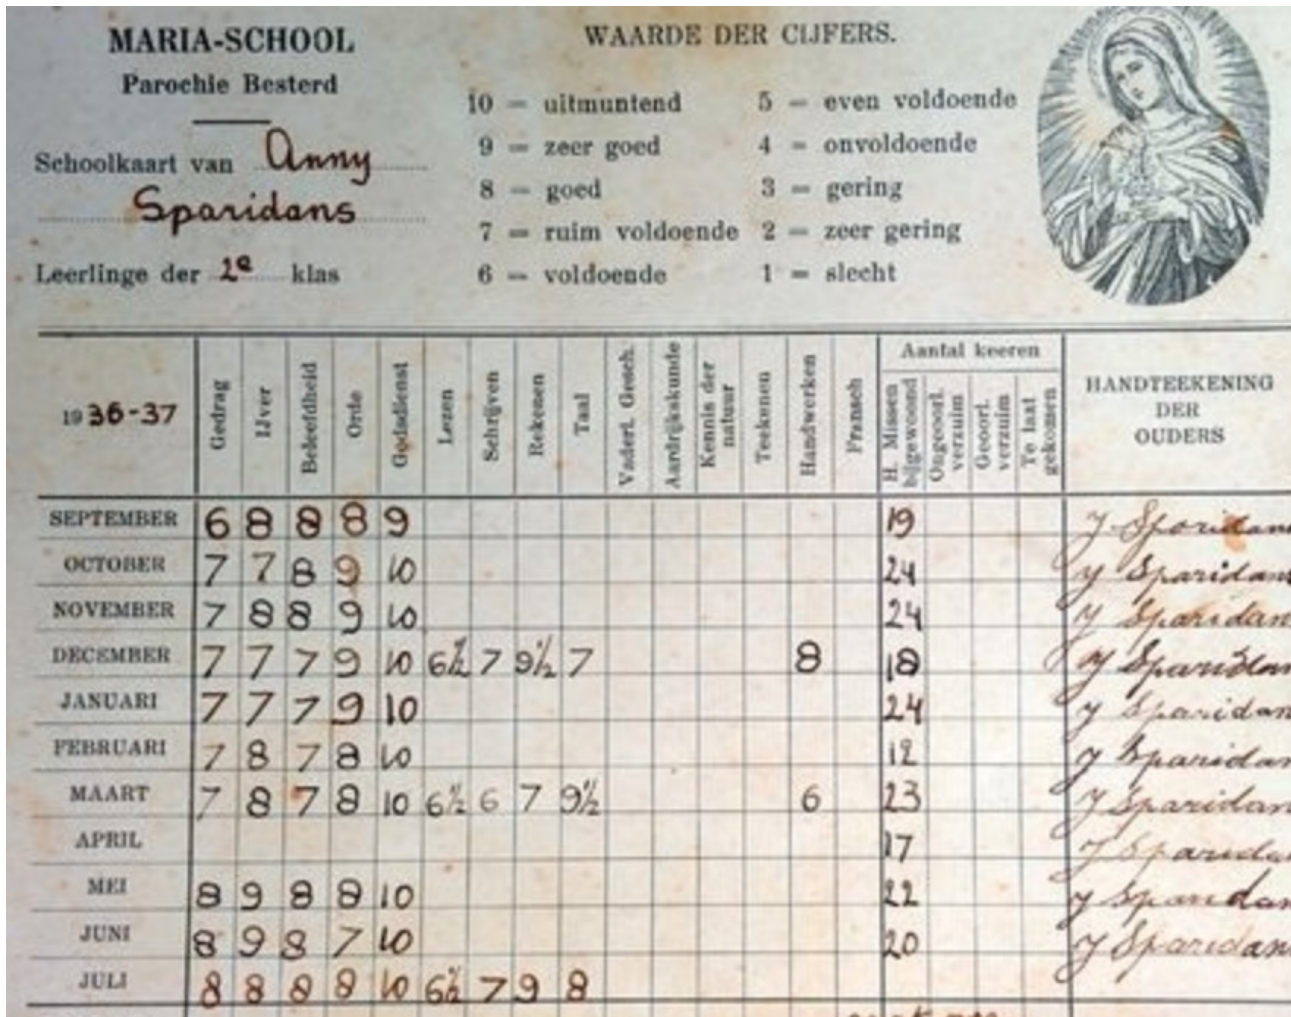 MARIA-SCHOOL
Parochie Besterd
Schoolkaart van Anny
Sparidans
Leerlinge der 2e klas
WAARDE DER CIJFERS.
10 = uitmuntend 5 = even voldoende
9 = zeer goed 4 = onvoldoende
8 = goed 3 = gering
7 = ruim voldoende 2 = zeer gering
6 = voldoende 1 = slecht
Aantal keeren
1936-37 Gedrag IJver Beleefdheid Orde Godsdienst Lezen Schrijven Rekenen Taal Vaderl. Gesch. Aardrijkskunde Kennis der natuur Teekenen Handwerken Fransch H. Missen bijgewoond Ongeoorl. verzuim Geoorl. verzuim Te laat gekomen HANDTEEKENING DER OUDERS
SEPTEMBER 6 8 8 8 9 19 J Sparidans
OCTOBER 7 7 8 9 10 24 J Sparidans
NOVEMBER 7 8 8 9 10 24 J Sparidans
DECEMBER 7 7 7 9 10 6½ 7 9½ 7 8 18 J Sparidans
JANUARI 7 7 7 9 10 24 J Sparidans
FEBRUARI 7 8 7 8 10 12 J Sparidans
MAART 7 8 7 8 10 6½ 6 7 9½ 6 23 J Sparidans
APRIL 17 J Sparidans
MEI 8 9 8 8 10 22 J Sparidans
JUNI 8 9 8 7 10 20 J Sparidans
JULI 8 8 8 8 10 6½ 7 9 8